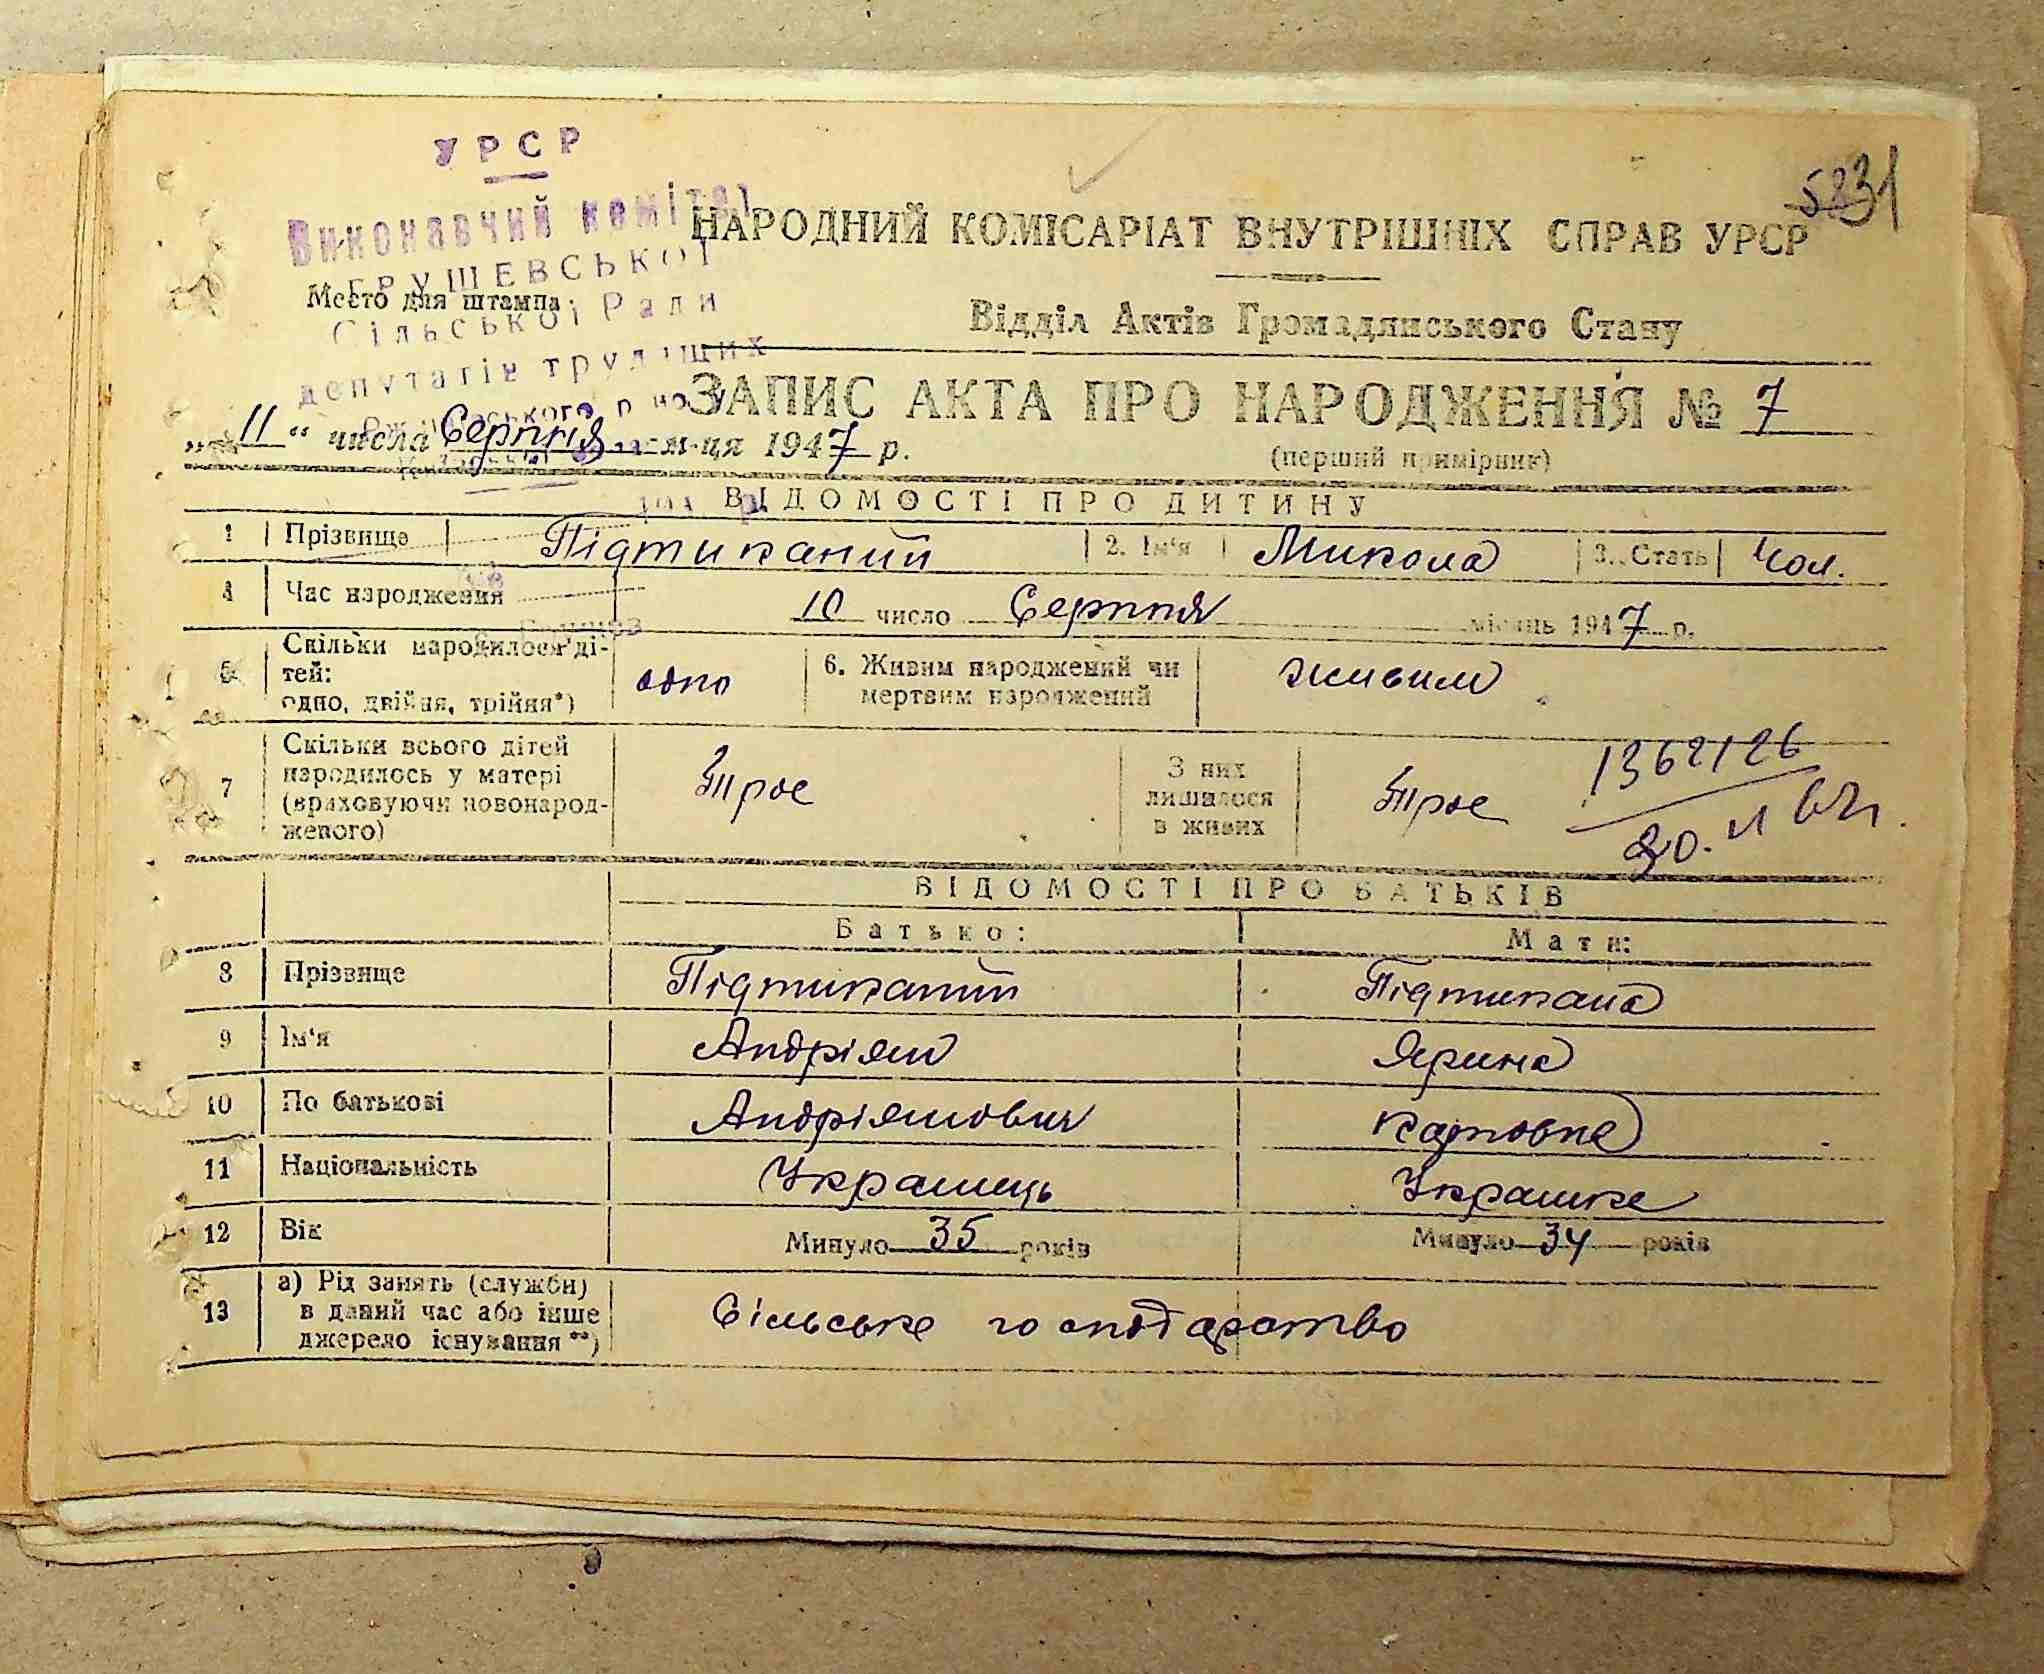 УРСР
Виконавчий комітет
ГРУШЕВСЬКОЇ
Сільської Ради
депутатів трудящих
5831
НАРОДНИЙ КОМІСАРІАТ ВНУТРІШНІХ СПРАВ УРСР
Место для штампа
Відділ Актів Громадянського Стану
ЗАПИС АКТА ПРО НАРОДЖЕННЯ № 7
(перший примірник)
„ 11 “ числа Серпня м-ця 1947 р.
ВІДОМОСТІ ПРО ДИТИНУ
1 Прізвище Підтиканий 2. Ім'я Микола 3. Стать Чол.
4 Час народження 10 число Серпня місяць 1947 р.
5 Скільки народилося ді-
тей:
одно, двійня, трійня*) одно 6. Живим народжений чи
мертвим народжений живим
7 Скільки всього дітей
народилось у матері
(враховуючи новонарод-
женого) троє З них
лишилося
в живих троє
1362126
ВІДОМОСТІ ПРО БАТЬКІВ
Батько: Мати:
8 Прізвище Підтиканий Підтикана
9 Ім'я Андріян Ярина
10 По батькові Андріянович
11 Національність Українець Українка
12 Вік Минуло 35 років Минуло 34 років
13 а) Рід занять (служби)
в даний час або інше
джерело існування**) Сільське господарство